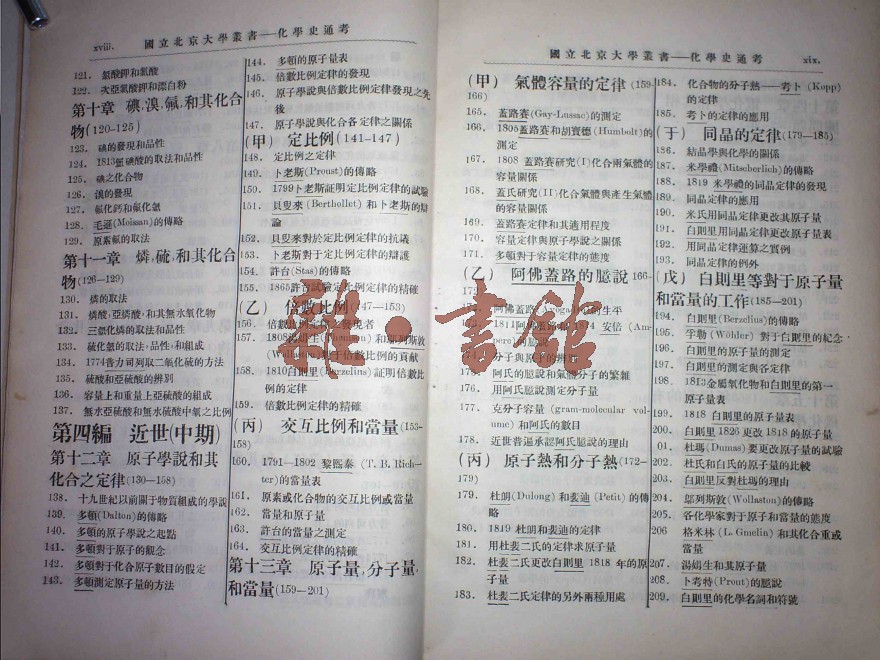 xviii. 國立北京大學叢書──化學史通考
121. 氯酸鉀和氯酸
122. 次亞氯酸鉀和漂白粉
第十章 碘,溴,氟,和其化合
物(120—125)
123. 碘的發現和品性
124. 1813氫碘酸的取法和品性
125. 碘之化合物
126. 溴的發現
127. 氟化鈣和氟化氫
128. 毛遜(Moissan)的傳略
129. 原素氟的取法
第十一章 燐,硫,和其化合
物(126—129)
130. 燐的取法
131. 燐酸,亞燐酸,和其無水氧化物
132. 三氫化燐的取法和品性
133. 硫化氫的取法,品性,和組成
134. 1774普力司列取二氧化硫的方法
135. 硫酸和亞硫酸的辨別
136. 容量上和重量上亞硫酸的組成
137. 無水亞硫酸和無水硫酸中氧之比例
第四編 近世(中期)
第十二章 原子學說和其
化合之定律(130—158)
138. 十九世紀以前關于物質組成的學說
139. 多頓(Dalton)的傳略
140. 多頓的原子學說之起點
141. 多頓對于原子的觀念
142. 多頓對于化合原子數目的假定
143. 多頓測定原子量的方法
144. 多頓的原子量表
145. 倍數比例定律的發現
146. 原子學說與倍數比例定律發現之先
後
147. 原子學說與化合各定律之關係
(甲) 定比例(141—147)
148. 定比例之定律
149. 卜老斯(Proust)的傳略
150. 1799卜老斯証明定比例定律的試驗
151. 貝叟來(Berthollet)和卜老斯的辯
論
152. 貝叟來對於定比例定律的抗議
153. 卜老斯對于定比例定律的辯護
154. 許台(Stas)的傳略
155. 1865許台試驗定比例定律的精確
(乙) 倍數比例(147—153)
156. 倍數比例定律之發現者
157. 1808湯姆生(Thomson)和鄔列斯敦
(Wollaston)對于倍數比例的貢獻
158. 1810白則里(Berzelins)証明倍數比
例的定律
159. 倍數比例定律的精確
(丙) 交互比例和當量(153-
158)
160. 1791—1802 黎熙泰 (T. B. Rich-
ter)的當量表
161. 原素或化合物的交互比例或當量
162. 當量和原子量
163. 許台的當量之測定
164. 交互比例定律的精確
第十三章 原子量,分子量,
和當量(159—201)
國立北京大學叢書──化學史通考 xix.
(甲) 氣體容量的定律(159-
166)
165. 蓋路賽(Gay-Lussac)的測定
166. 1805蓋路賽和胡寶德(Humbolt)的
測定
167. 1808 蓋路賽研究(I)化合兩氣體的
容量關係
168. 蓋氏研究(II)化合氣體與產生氣體
的容量關係
169. 蓋路賽定律和其適用程度
170. 容量定律與原子學說之關係
171. 多頓對于容量定律的態度
(乙) 阿佛蓋路的臆說 166-
172. 阿佛蓋路(Avogadro)的生平
1811阿佛蓋路和 1814 安倍 (Am-
pere)的臆說
分子與原子的辨別
175. 阿氏的臆說和氣體分子的繁雜
176. 用阿氏臆說測定分子量
177. 克分子容量 (gram-molecular vol-
ume) 和阿氏的數目
178. 近世普遍承認阿氏臆說的理由
(丙) 原子熱和分子熱(172—
179)
179. 杜朗(Dulong) 和裴迪 (Petit) 的傳
略
180. 1819 杜朗和裴迪的定律
181. 用杜裴二氏的定律求原子量
182. 杜裴二氏更改白則里 1818 年的原
子量
183. 杜裴二氏定律的另外兩種用處
184. 化合物的分子熱──考卜 (Kopp)
的定律
185. 考卜的定律的應用
(于) 同晶的定律(179—185)
186. 結晶學與化學的關係
187. 米學禮(Mitscherlich)的傳略
188. 1819 米學禮的同晶定律的發現
189. 同晶定律的應用
190. 米氏用同晶定律更改其原子量
191. 白則里用同晶定律更改原子量表
192. 用同晶定律運算之實例
193. 同晶定律的例外
(戊) 白則里等對于原子量
和當量的工作(185—201)
194. 白則里(Berzelius)的傳略
195. 孚勒 (Wöhler) 對于白則里的紀念
196. 白則里的原子量的測定
197. 白則里的測定與各定律
198. 1813金屬氧化物和白則里的第一
原子量表
199. 1818 白則里的原子量表
200. 白則里 1826 更改 1818 的原子量
201. 杜瑪 (Dumas) 要更改原子量的試驗
202. 杜氏和白氏的原子量的比較
203. 白則里反對杜瑪的理由
204. 鄔列斯敦(Wollaston)的傳略
205. 各化學家對于原子和當量的態度
206 格米林 (L. Gmelin) 和其化合重或
當量
207. 湯姆生和其原子量
208. 卜考特(Prout)的臆說
209. 白則里的化學名詞和符號
書館